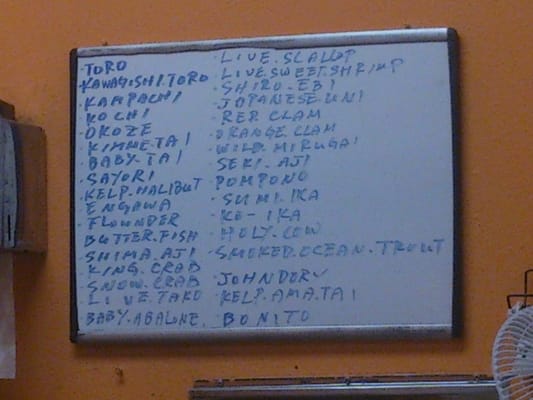 · TORO
· KAWAGISHI.TORO
· KAMPACHI
· KOCHI
· OKOZE
· KINMETAI
· BABY.TAI
· SAYORI
· KELP.HALIBUT
· ENGAWA
· FLOUNDER
· BUTTER.FISH
· SHIMA.AJI
· KING.CRAB
· SNOW.CRAB
· LIVE.TAKO
· BABY.ABALONE.
· LIVE.SCALLOP
· LIVE.SWEET.SHRIMP
· SHIRO.EBI
· JAPANESE.UNI
· RED.CLAM
· ORANGE.CLAM
· WILD.MIRUGAI
· SEKI.AJI
· POMPONO
· SUMI.IKA
· KO-IKA
· HOLY.COW
· SMOKED.OCEAN.TROUT
· JOHNDORY
· KELP.AMA.TAI
· BONITO